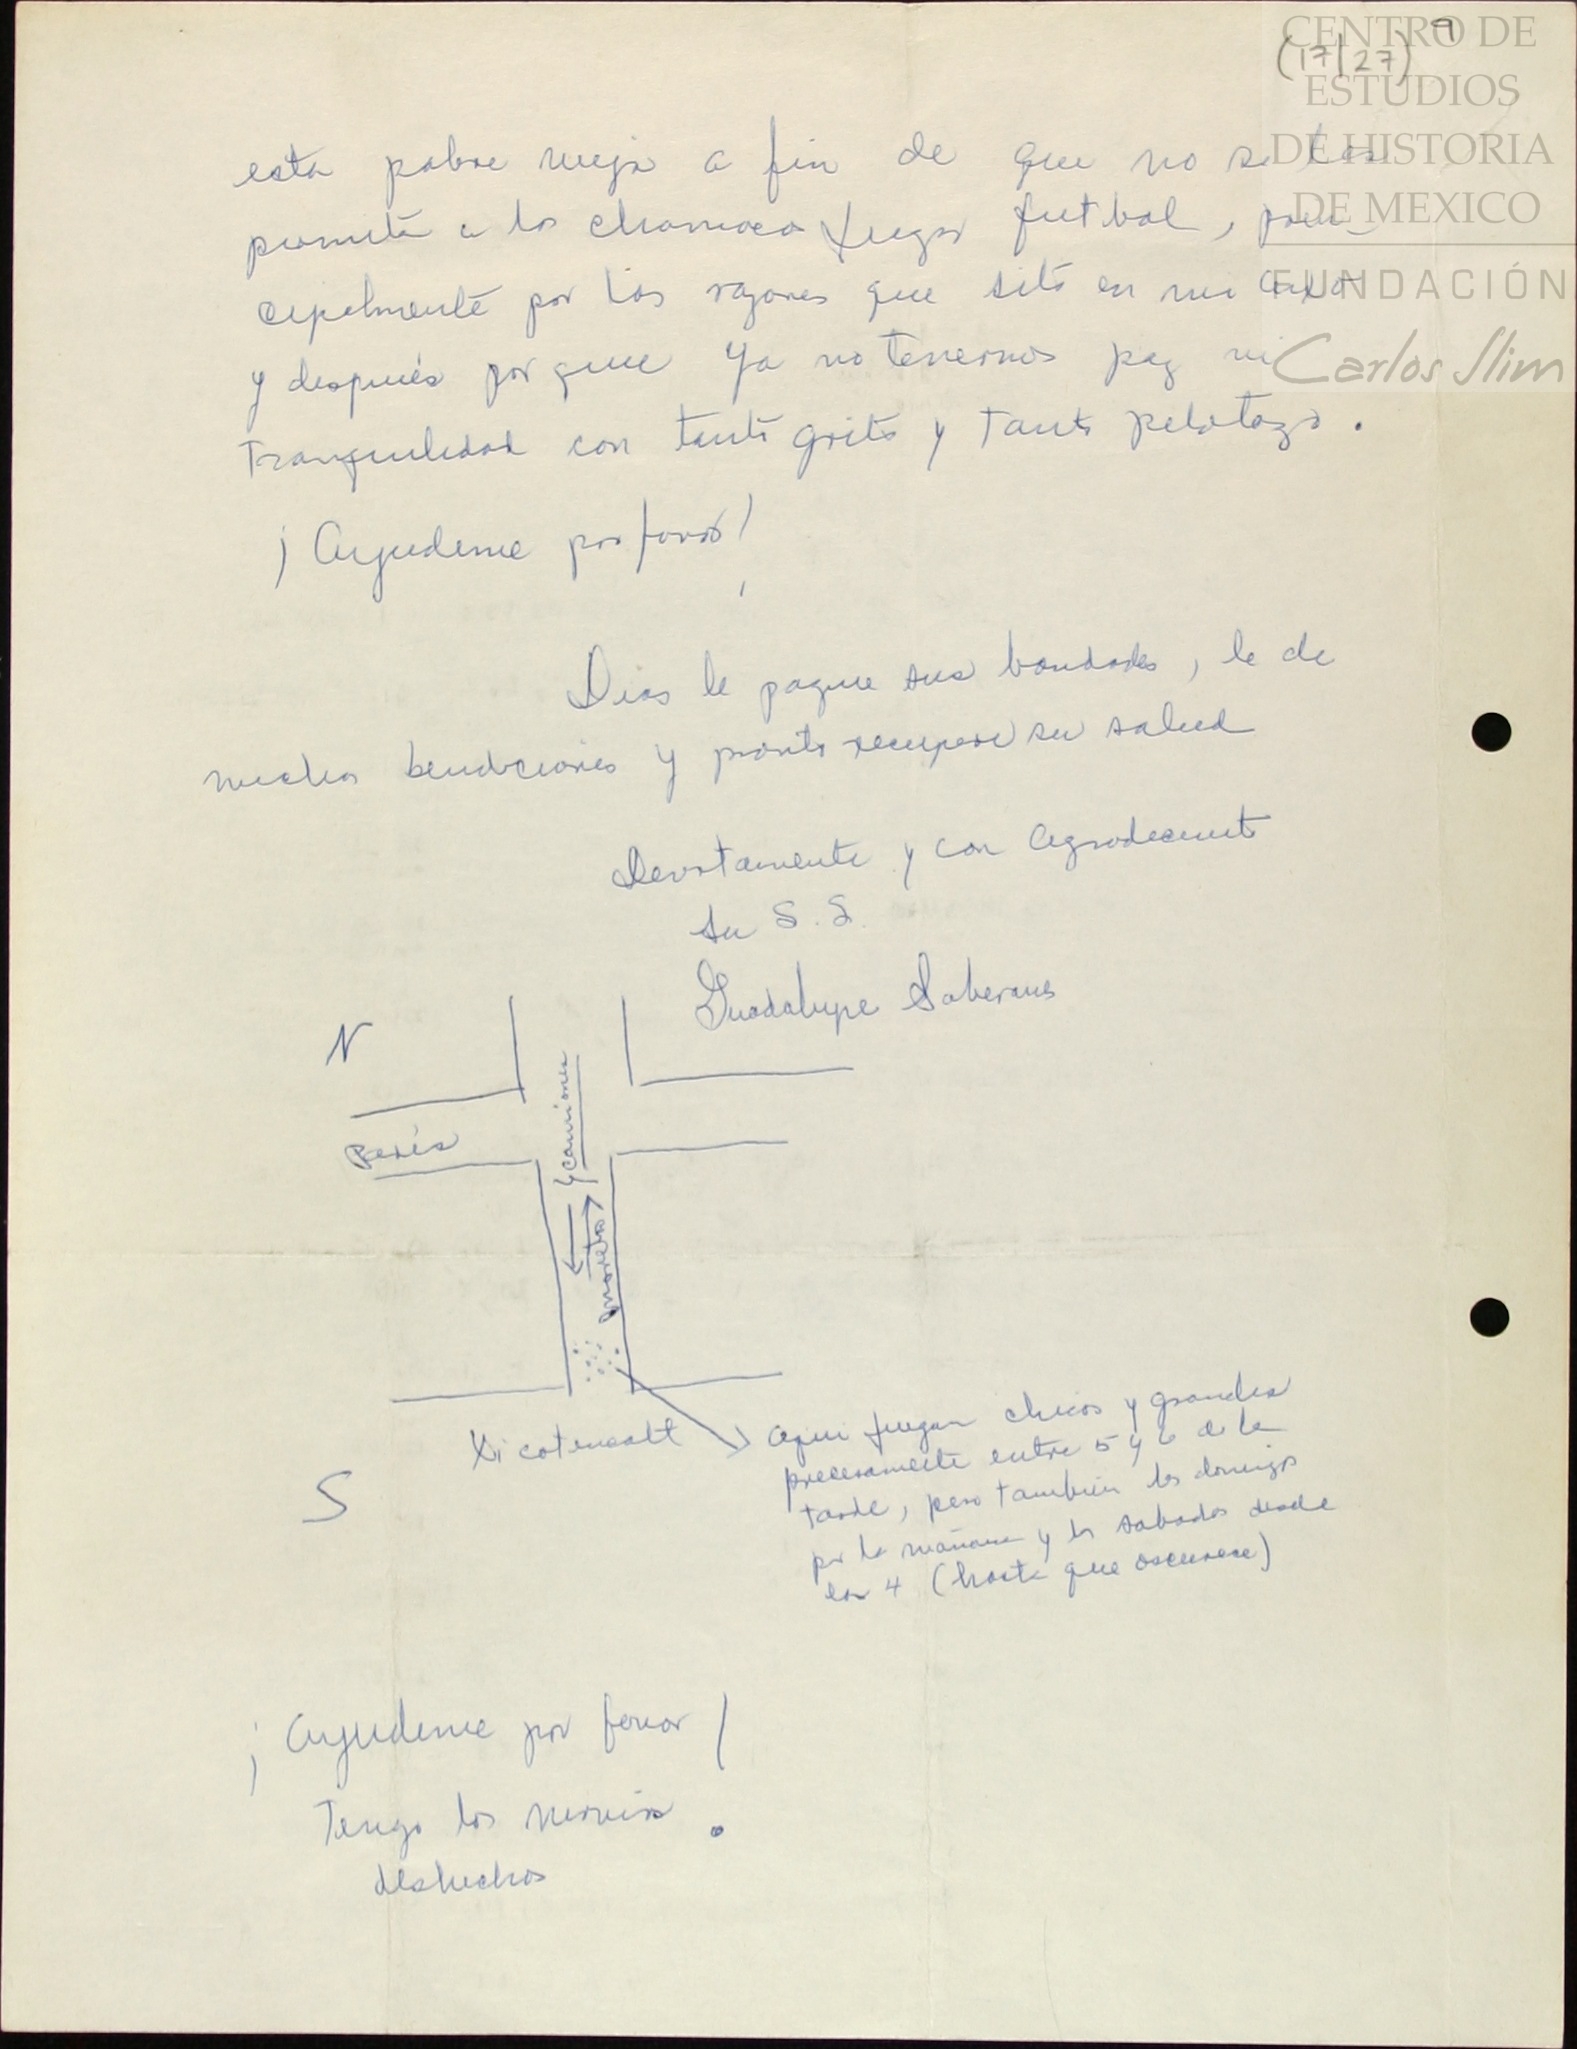 (17/27) 9
CENTRO DE
ESTUDIOS
DE HISTORIA
DE MEXICO
FUNDACIÓN
Carlos Slim
esta pobre vieja a fin de que no se les
permita a los chamacos jugar futbol, prin-
cipalmente por las razones que sité en mi carta
y después porque ya no tenemos paz ni
tranquilidad con tanto grito y tanto pelotazo.
¡Ayudeme por favor!
Dios le pague sus bondades, le de
muchas bendiciones y pronto recupere su salud
Devotamente y con agradecimiento
Su S. S.
Guadalupe Saberanes
N
París
y camiones
S
Xicotencatl
aqui juegan chicos y grandes
precisamente entre 5 y 6 de la
tarde, pero también los domingos
por la mañana y los sabados desde
las 4 (hasta que oscurece)
¡Ayudeme por favor!
Tengo los nervios
deshechos.